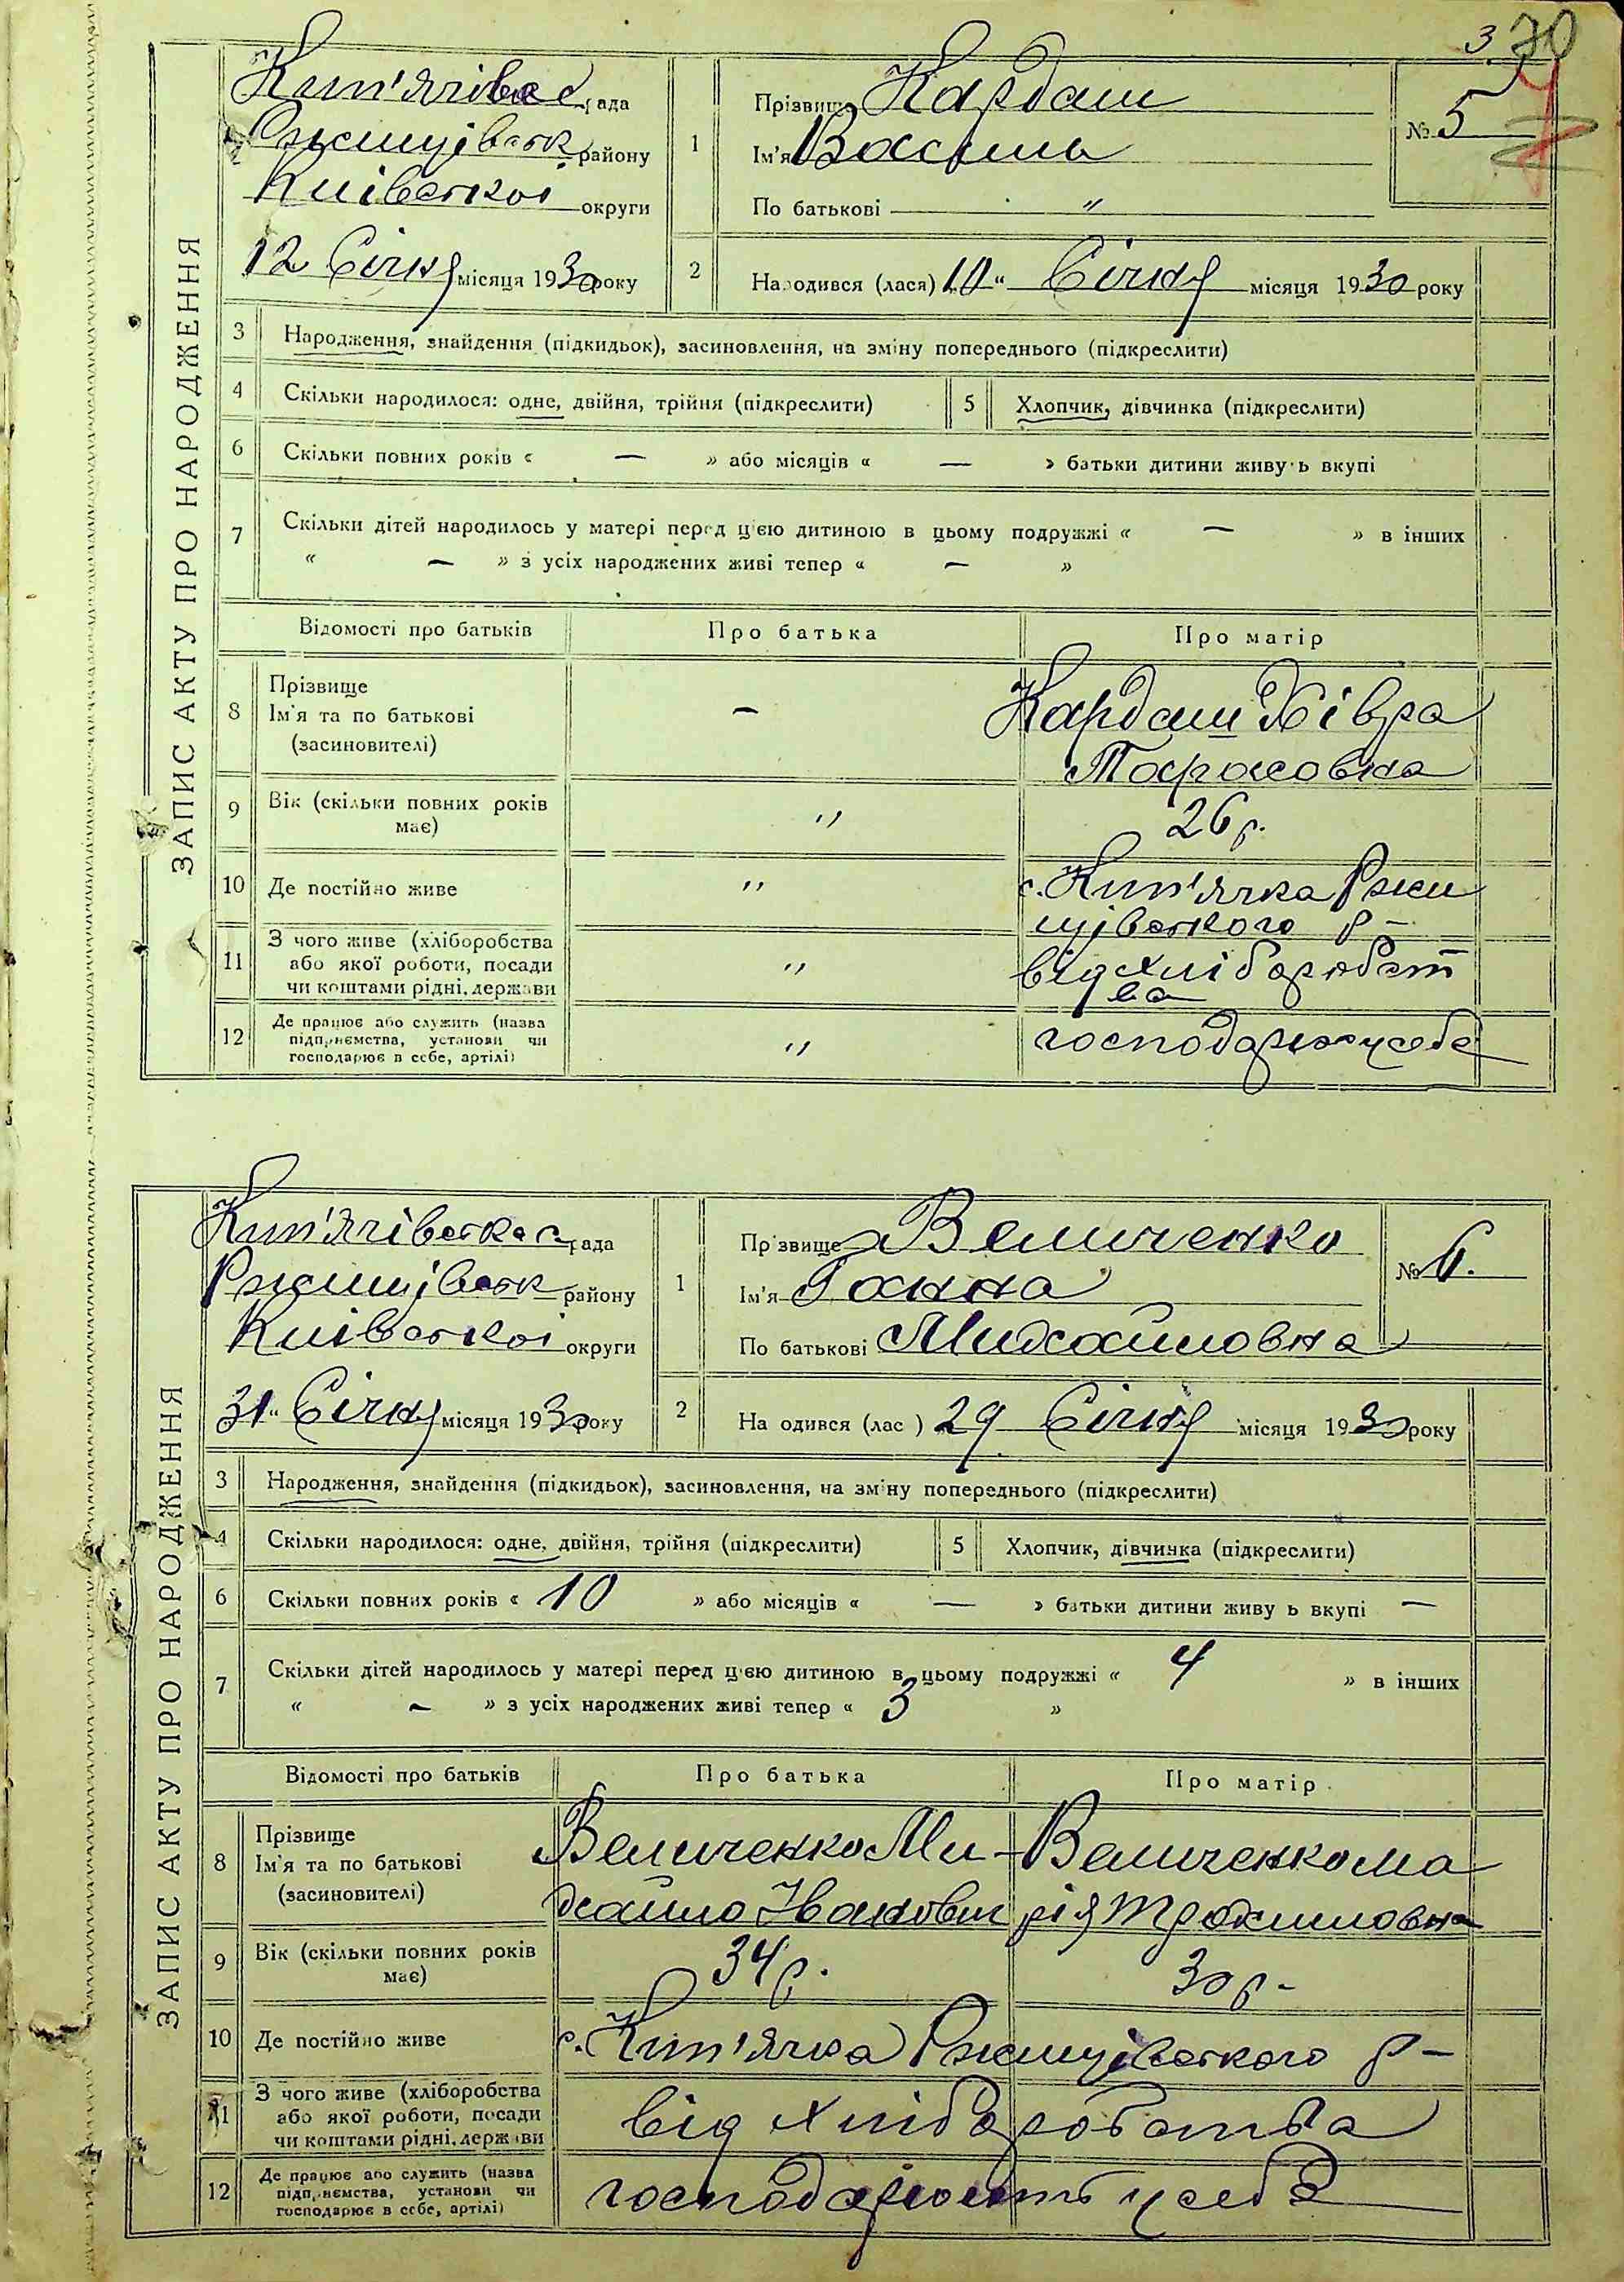 3 70
ЗАПИС АКТУ ПРО НАРОДЖЕННЯ
Кип'ячівс с/рада
Ржищівськ району
Київської округи
12 Січня місяця 1930 року
1
Прізвище Кардаш
Ім'я Василь
По батькові — "
№ 5
2
Народився (лася) „10" Січня місяця 1930 року
3 Народження, знайдення (підкидьок), засиновлення, на зміну попереднього (підкреслити)
4 Скільки народилося: одне, двійня, трійня (підкреслити) 5 Хлопчик, дівчинка (підкреслити)
6 Скільки повних років « — » або місяців « — » батьки дитини живуть вкупі
7 Скільки дітей народилось у матері перед цією дитиною в цьому подружжі « — » в інших
« — » з усіх народжених живі тепер « — »
Відомості про батьків Про батька Про матір
8 Прізвище Ім'я та по батькові (засиновителі) — Кардаш Хівра
Тарасовна
9 Вік (скільки повних років має) " 26 р.
10 Де постійно живе " с. Кип'ячка Ржи
щівського р-
11 З чого живе (хліборобства " від хліборобст
або якої роботи, посади ва
чи коштами рідні, держави
12 Де працює або служить (назва " господарює у себе
підприємства, установи чи
господарює в себе, артілі)
ЗАПИС АКТУ ПРО НАРОДЖЕННЯ
Кип'ячівська с/рада
Ржищівськ району
Київської округи
31" Січня місяця 1930 року
1
Прізвище Величенко
Ім'я Ганна
По батькові Михайловна
№ 6.
2
На одився (лас ) 29 Січня місяця 1930 року
3 Народження, знайдення (підкидьок), засиновлення, на зміну попереднього (підкреслити)
4 Скільки народилося: одне, двійня, трійня (підкреслити) 5 Хлопчик, дівчинка (підкреслити)
6 Скільки повних років « 10 » або місяців « — » батьки дитини живу ь вкупі —
7 Скільки дітей народилось у матері перед цією дитиною в цьому подружжі « 4 » в інших
« — » з усіх народжених живі тепер « 3 »
Відомості про батьків Про батька Про матір
8 Прізвище Величенко Ми- Величенко Ма
Ім'я та по батькові хайло Іванович рія Трохимовна
(засиновителі)
9 Вік (скільки повних років має) 34 р. 30 р-
10 Де постійно живе с. Кип'ячка Ржищівського р-
11 З чого живе (хліборобства від хліборобства
або якої роботи, посади
чи коштами рідні, держави
12 Де працює або служить (назва господарюють у себе
підприємства, установи чи
господарює в себе, артілі)